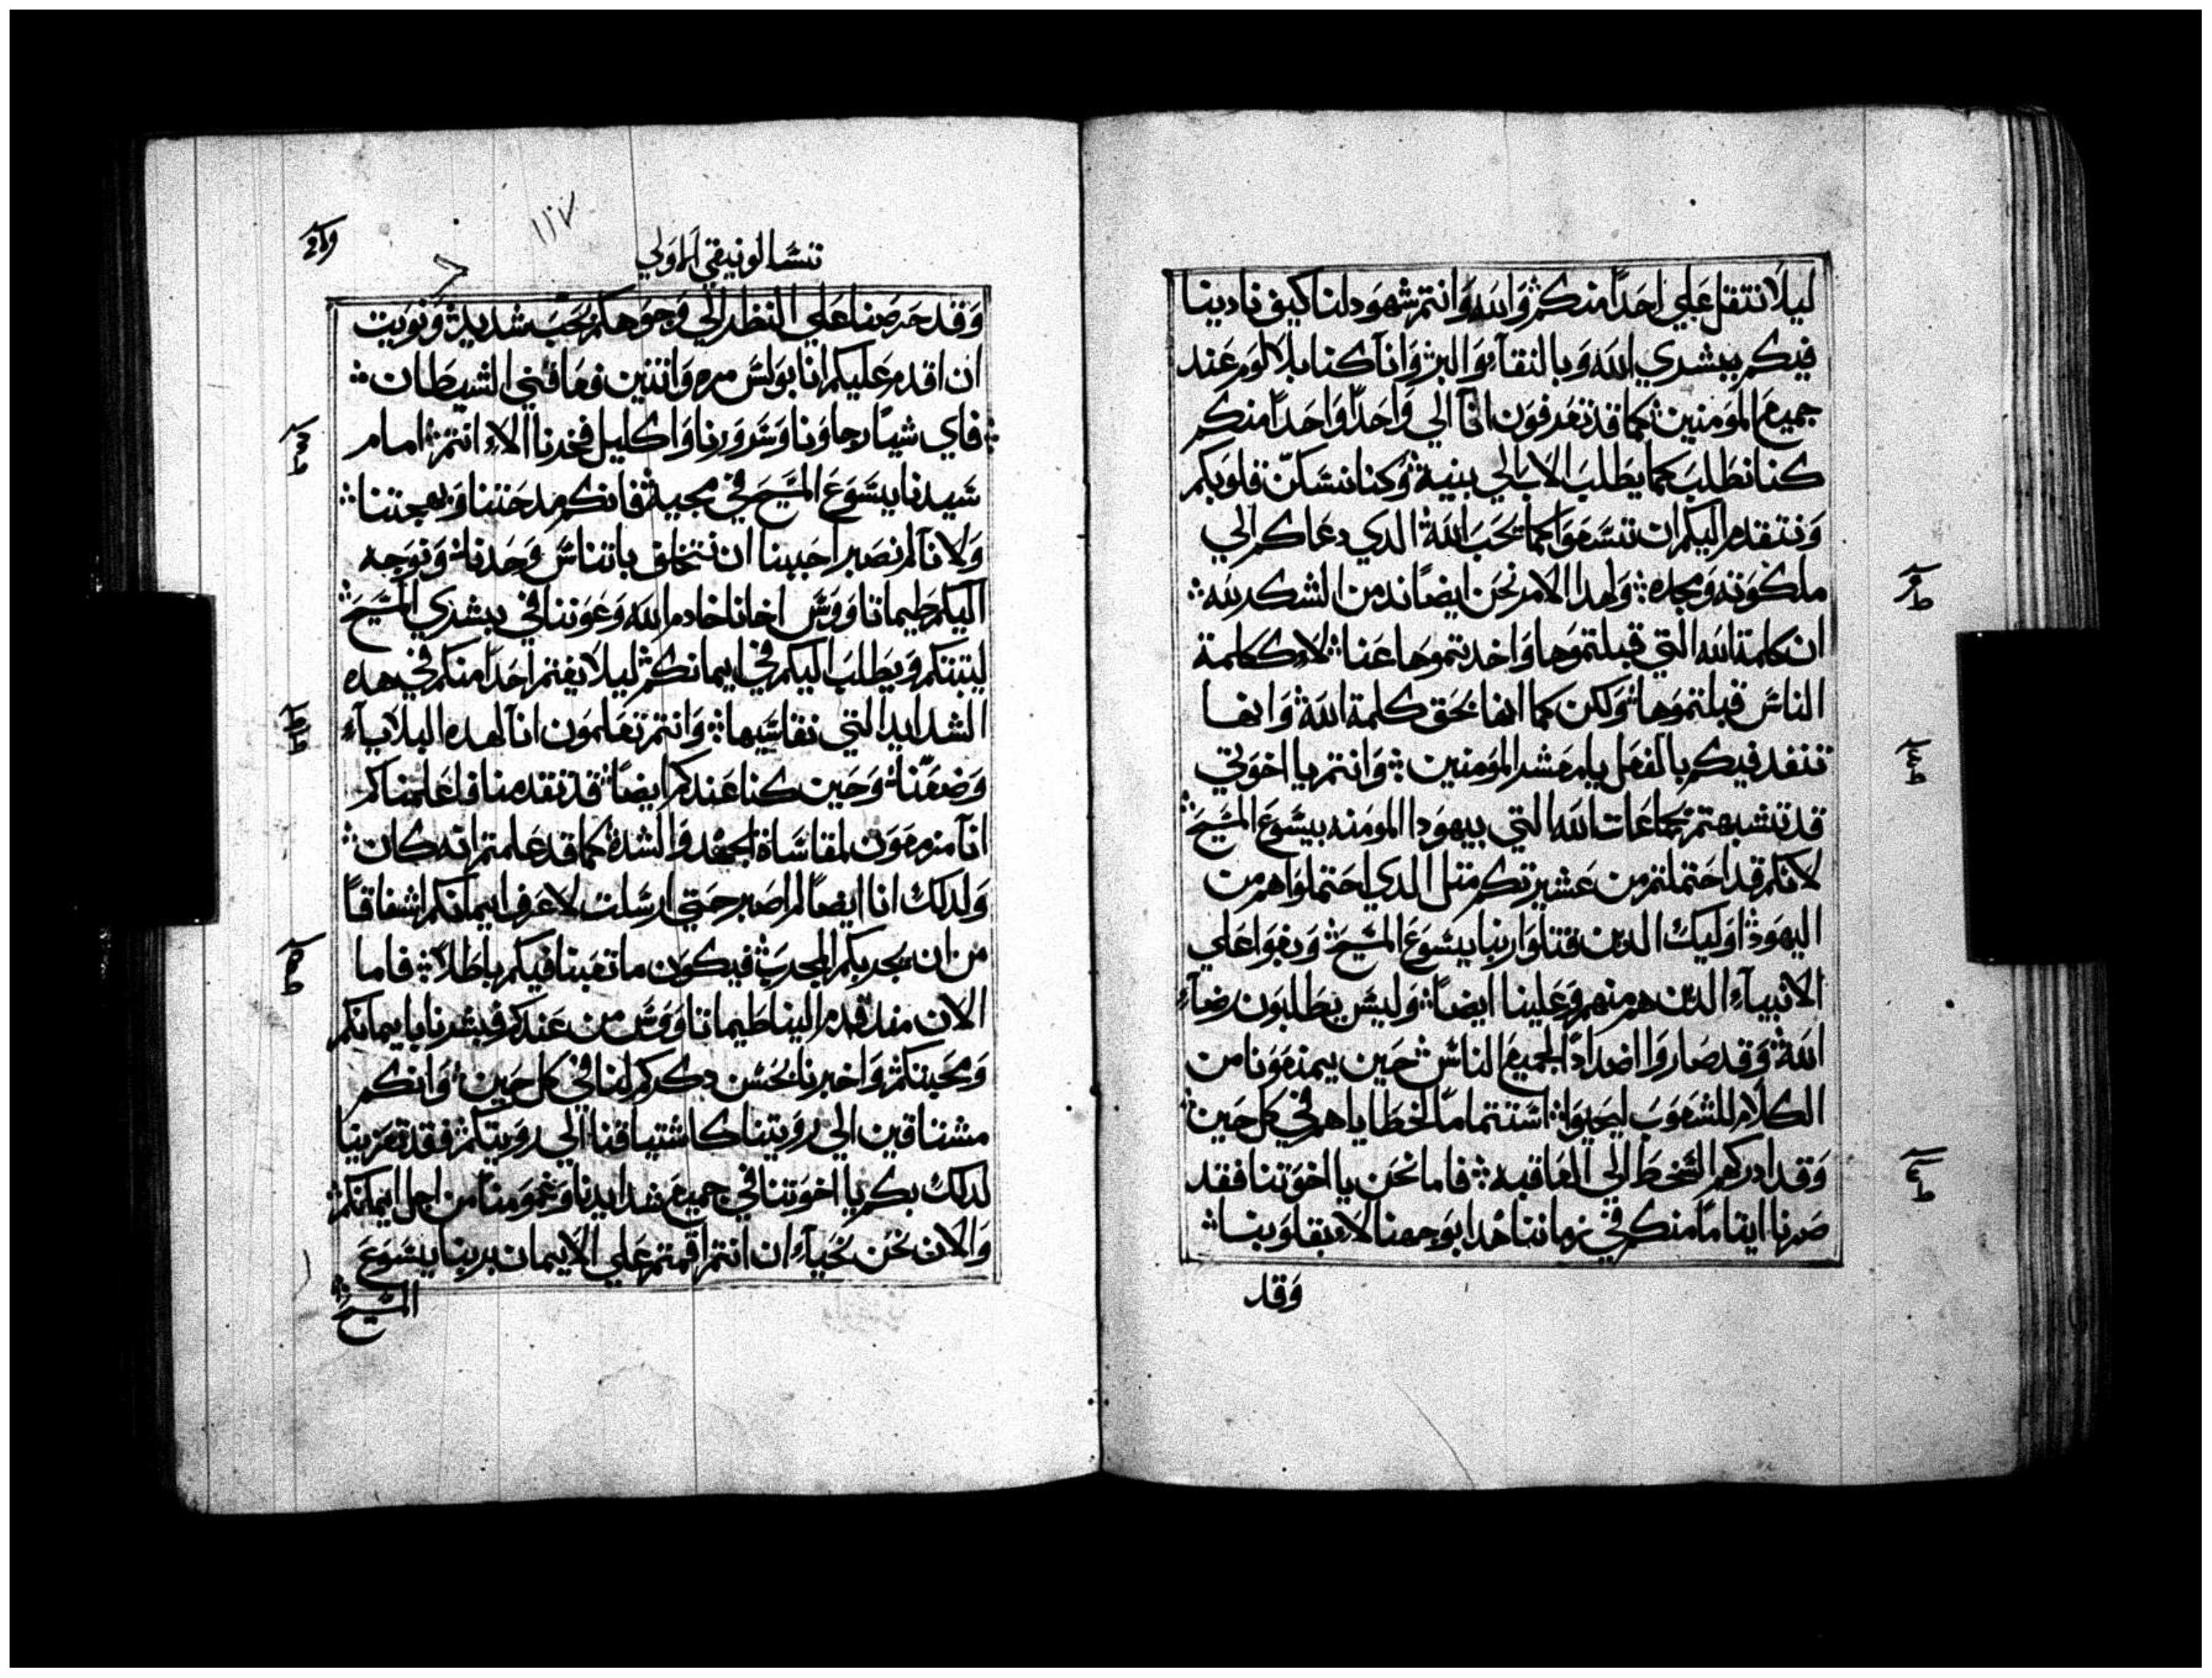 ليلا نتقل علي احدا منكم والله وانتم شهود لنا كيف نادينا
فيكم ببشري الله وبالنقآء والبر وانآ كنا بلا لوم عند
جميع المومنين كما قد تعرفون انآ الي واحدا واحدا منكم
كنا نطلب كما يطلب الاب الي بنيه وكنا نسكن قلوبكم
ونتقدم اليكم ان تسعوا كما يحب الله الدي دعاكم الي
ملكوته ومجده ولهدا الامر نحن ايضا ندمن الشكر لله
ان كلمة الله التي قبلتموها واخدتموها عنا لا ككلمة
الناس قبلتموها ولكن كما انها بحق كلمة الله وانها
تنفد فيكم بالفعل يا معشر المومنين وانتم يا اخوتي
قد تشبهتم بجماعات الله التي بيهودا المومنه بيسوع المسيح
لانكم قد احتملتم من عشيرتكم متل الدي احتملوا هم من
اليهود اوليك الدين قتلوا ربنا يسوع المسيح وبغوا علي
الانبيآء الدين هم منهم وعلينا ايضا وليس يطلبون رضآء
الله وقد صاروا اضدادا لجميع الناس حين يمنعونا من
الكلام للشعوب ليحيوا استتماما لخطاياهم في كل حين
وقد ادركهم السخط الي العاقبه فاما نحن يا اخوتنا فقد
صرنا ايتاما منكم في زماننا هدا بوجوهنا لا بقلوبنا
وقد
تسالونيقي الاولي
١١٧
وقد حرصنا علي النظر الي وجوهكم بحب شديد ونويت
ان اقدم عليكم انا بولس مره واتنتين فعاقني الشيطان
فاي شيا رجاونا وسرورنا واكليل فخرنا الا انتم امام
سيدنا يسوع المسيح في مجيه فانكم مدحتنا وبهجتنا
ولانآ لم نصبر احببنا ان نتخلف باتناس وحدنا ونوجه
اليكم طيماتاووس اخانا خادم الله وعوننا في بشري المسيح
ليتبتكم ويطلب اليكم في ايمانكم ليلا يغتم احدا منكم في هده
الشدايد التي نقاسيها وانتم تعلمون انآ لهده البلايآء
وضعنا وحين كنا عندكم ايضا قد تقدمنا فاعلمناكم
انآ مزمعون لمقاساة الجهد والشدة كما قد علمتم انه كان
ولدلك انا ايضا لم اصبر حتي ارسلت لاعرف ايمانكم اشفاقا
من ان يجربكم المجرب فيكون ما تعبنا فيكم باطلا فاما
الان مند قدم الينا طيماتاووس من عندكم فبشرنا بايمانكم
ومحبتكم واخبرنا بحسن دكركم لنا في كل حين وانكم
مشتاقين الي رويتنا كاشتياقنا الي رويتكم فقد تعزينا
لدلك بكم يا اخوتنا في جميع شدايدنا وغمومنا من اجل ايمانكم
والان نحن نحيآء ان انتم اقمتم علي الايمان بربنا يسوع
المسيح